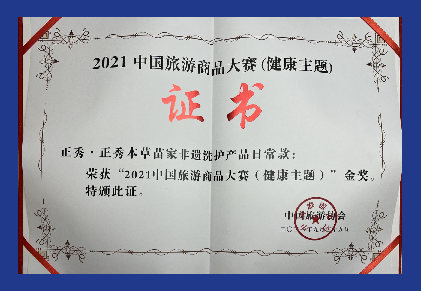 2021中国旅游商品大赛(健康主题)
证书
正秀·正秀本草苗家非遗洗护产品日常款：
荣获“2021中国旅游商品大赛（健康主题）”金奖。
特颁此证。
中国旅游协会